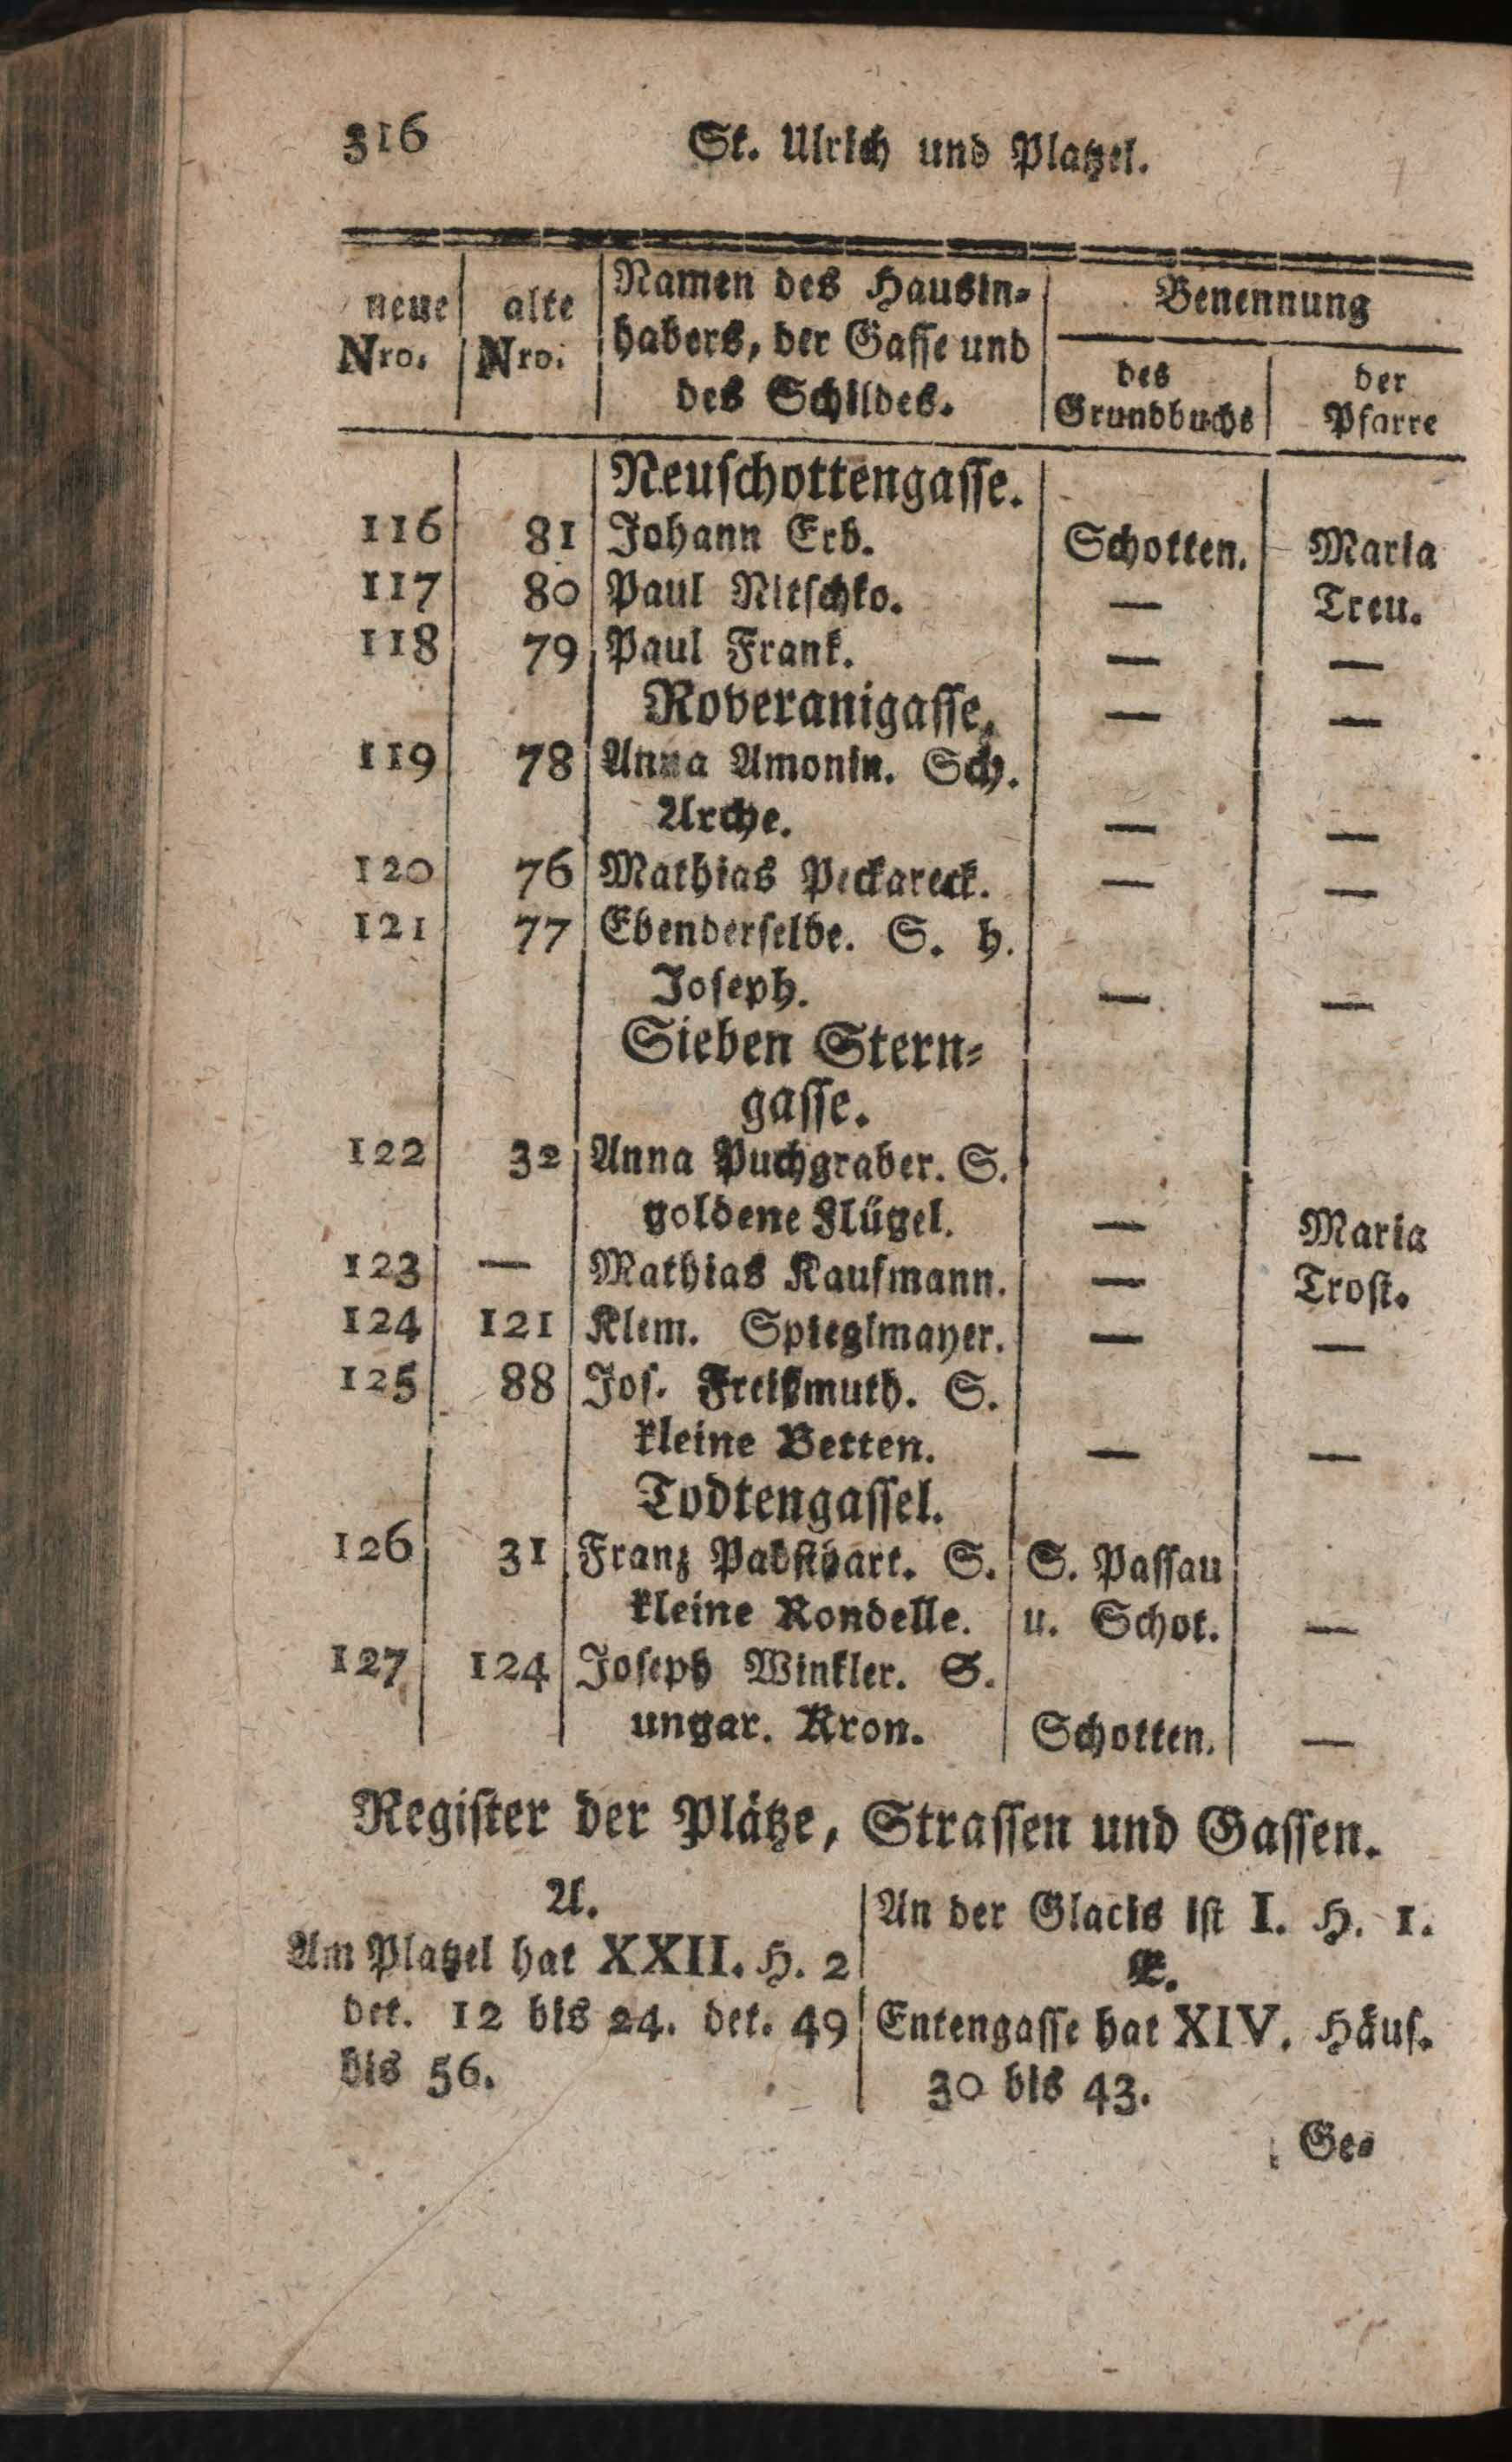 316 St. Ulrich und Platzel.
neue Nro. | alte Nro. | Namen des Hausin- | Benennung
habers, der Gasse und
des Schildes. | des Grundbuchs | der Pfarre
Neuschottengasse.
116 81 Johann Erb. Schotten. Maria
117 80 Paul Nitschko. — Treu.
118 79 Paul Frank. — —
Roveranigasse. — —
119 78 Anna Amonin. Sch.
Arche. — —
120 76 Mathias Peckareck. — —
121 77 Ebenderselbe. S. h.
Joseph. — —
Sieben Stern-
gasse.
122 32 Anna Puchgraber. S.
goldene Flügel. — Maria
123 — Mathias Kaufmann. — Trost.
124 121 Klem. Spieglmayer. — —
125 88 Jos. Freißmuth. S.
kleine Betten. — —
Todtengassel.
126 31 Franz S. S. Passau
kleine Rondelle. u. Schot. —
127 124 Joseph Winkler. S.
ungar. Kron. Schotten. —
Register der Plätze, Strassen und Gassen.
A.
Am Platzel hat XXII. H. 2
det. 12 bis 24. det. 49
bis 56.
An der Glacis ist I. H. 1.
E.
Entengasse hat XIV. Häus.
30 bis 43.
Ge-